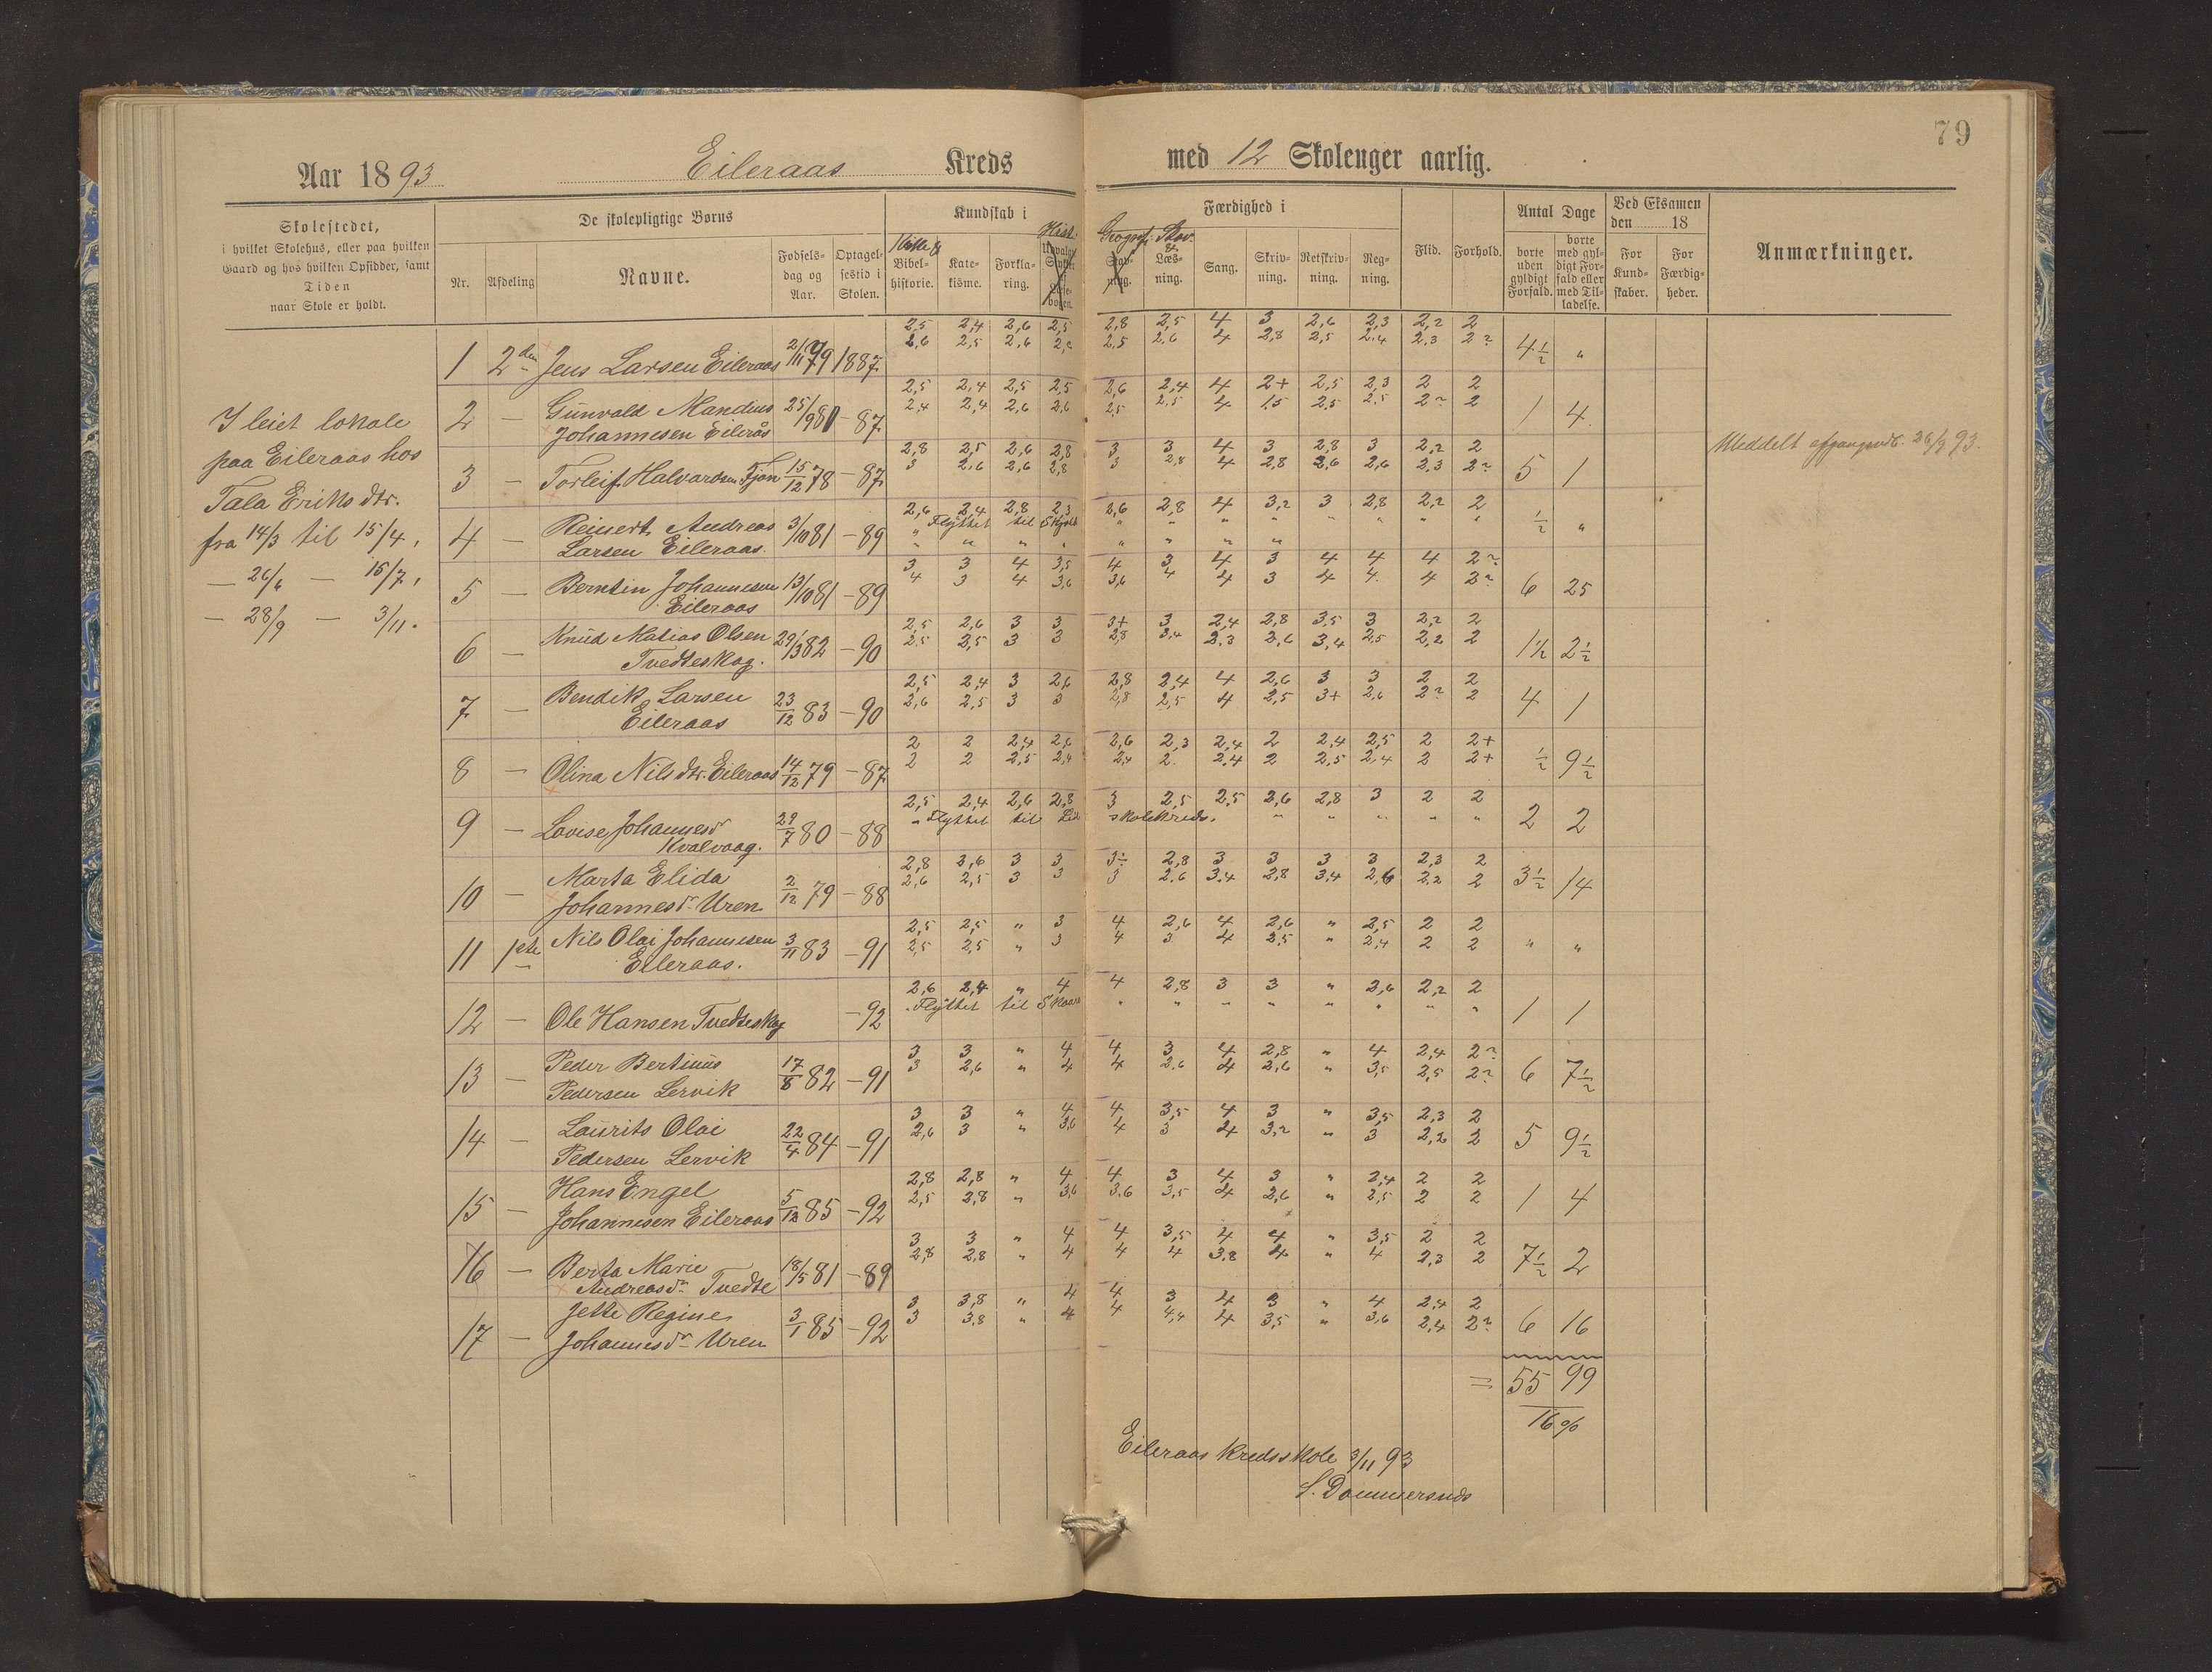 79
Aar 1893 Eileraas Kreds med 12 Skoleuger aarlig.
Skolestedet,
i hvilket Skolehus, eller paa hvilken
Gaard og hos hvilken Opsidder, samt
Tiden
naar Skole er holdt.
De skolepligtige Børns
Nr. Afdeling Navne. Fødselsdag og Aar. Optagelsestid i Skolen.
Kundskab i
Bibelhistorie. Katekisme. Forklaring. Hist.
Færdighed i
Geograf. Stav. & Læsning. Sang. Skrivning. Retskrivning. Regning.
Flid. Forhold.
Antal Dage
borte uden gyldigt Forfald. borte med gyldigt Forfald eller med Tilladelse.
Ved Eksamen den 18
For Kundskaber. For Færdigheder.
Anmærkninger.
I leiet lokale
paa Eileraas hos
Tala Eriksdtr.
fra 14/3 til 15/4,
— 26/6 — 15/7,
— 28/9 — 3/11.
2,5 2,4 2,6 2,5 2,8 2,5 4 3 2,6 2,3 2,2 2
2,6 2,5 2,6 2,2 2,5 2,6 4 2,8 2,5 2,4 2,3 2?
1 2den Jens Larsen Eileraas 79 1887 4½ "
2,5 2,4 2,5 2,5 2,6 2,4 4 2+ 2,5 2,3 2 2
2,4 2,4 2,6 2,6 2,5 2,5 4 1,5 2,5 2,5 2? 2
2 — Gunvald Mandius 25/9 80 — 87 1 4
Johannesen Eilerås
2,8 2,5 2,6 2,8 3 3 4 3 2,8 3 2,2 2
3 2,6 2,6 2,8 3 2,8 4 2,8 2,6 2,6 2,3 2?
3 — Torleif Halvardsen Fjon 15/12 78 — 87 5 1 Meddelt 26/9 93.
2,6 2,4 2,8 2,3 2,6 2,8 4 3,2 3 2,8 2,2 2
" Flyttet til " " " " " " " "
4 — Reinert Andreas 3/10 81 — 89 ½ "
Larsen Eileraas.
3 3 4 3,5 4 3 4 3 4 4 4 2?
4 3 4 3,6 3,6 4 4 3 4 4 4 2?
5 — Berntin Johannesen 13/10 81 — 89 6 25
Eileraas
2,5 2,6 3 3 3+ 3 2,4 2,8 3,5 3 2,2 2
2,5 2,5 3 3 2,8 3,4 2,3 2,6 3,4 2,5 2,2 2
6 — Knud Matias Olsen 29/3 82 — 90 1½ 2½
Tvedteskog.
2,5 2,4 3 2,6 2,8 2,4 4 2,6 3 3 2 2
2,6 2,5 3 3 2,8 2,5 4 2,5 3+ 2,6 2? 2
7 — Bendik Larsen 23/12 83 — 90 4 1
Eileraas
2 2 2,4 2,6 2,6 2,3 2,4 2 2,4 2,5 2 2+
2 2 2,5 2,4 2,4 2 2,4 2 2,5 2,4 2 2+
8 — Olina Nilsdtr. Eileraas 14/12 79 — 87 ½ 9½
2,5 2,4 2,6 2,8 3 2,5 2,5 2,6 2,8 3 2 2
" Flyttet til skolekreds. " " " " "
9 — Lovise Johannesdr 29/7 80 — 88 2 2
Kvalvaag.
2,8 3,6 3 3 3½ 2,8 3 3 3 3 2,3 2
2,6 2,5 3 3 3 2,6 3,4 2,8 3,4 2,6 2,2 2
10 — Marta Elida 2/12 79 — 88 3½ 14
Johannesdr Uren
2,5 2,5 " 3 4 2,6 4 2,6 " 2,5 2 2
2,5 2,5 " 3 4 3 4 2,5 " 2,4 2 2
11 1ste Nils Olai Johannesen 3/11 83 — 91 " "
Eileraas.
2,6 2,4 " 4 4 2,8 3 3 " 2,6 2,2 2
Flyttet til " " " " " " " "
12 — Ole Hansen Tvedteskog — 92 1 1
3 3 " 4 4 3 4 2,8 " 4 2,4 2?
3 2,6 " 4 4 2,6 4 2,6 " 3,5 2,5 2?
13 — Peder Bertinus 17/8 82 — 91 6 7½
Pedersen Lervik
3 3 " 4 4 3,5 4 3 " 3,5 2,3 2
2,6 3 " 3,6 4 3 4 3,2 " 3 2,2 2
14 — Laurits Olai 22/4 84 — 91 5 9½
Pedersen Lervik
2,8 2,8 " 4 4 3 4 3 " 2,4 2 2
2,5 2,8 " 3,6 3,6 3,5 4 2,6 " 2,5 2 2
15 — Hans Engel 5/12 85 — 92 1 4
Johannesen Eileraas
3 3 " 4 4 3,5 4 4 " 3,5 2 2
2,8 2,8 " 4 4 4 3,8 4 " 4 2,3 2
16 — Berta Marie 18/5 81 — 89 7½ 2
Andreasdr Tvedte
3 3,8 " 4 4 3 4 3 " 4 2,4 2
3 3,8 " 4 4 4,4 4 3,5 " 3,6 2,4 2?
17 — Jette Regine 3/1 85 — 92 6 16
Johannesdr Uren
= 55 99
16%
Eileraas Kredsskole 3/11 93